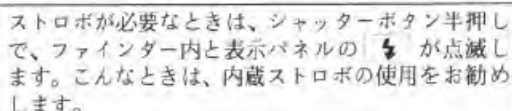 ストロボが必要なときは、シャッターボタン半押し
で、ファインダー内と表示パネルの ⚡ が点滅し
ます。こんなときは、内蔵ストロボの使用をお勧め
します。